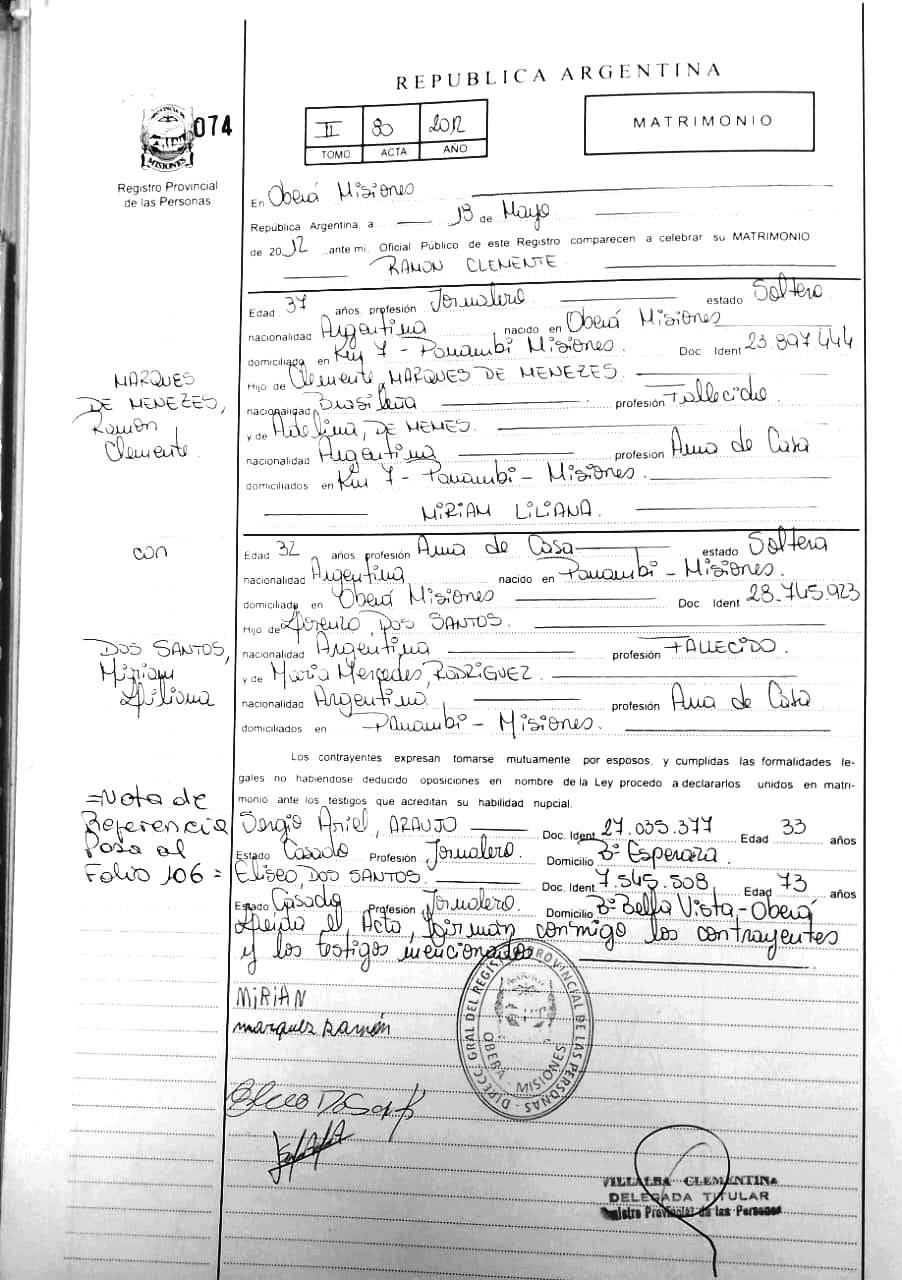 REPUBLICA ARGENTINA
074
II 80 2012
TOMO ACTA AÑO
MATRIMONIO
MISIONES
Registro Provincial
de las Personas
En Oberá Misiones
República Argentina, a 18 de Mayo
de 2012 ante mi, Oficial Público de este Registro comparecen a celebrar su MATRIMONIO
RAMON CLEMENTE
Edad 37 años, profesión Jornalero estado Soltero
nacionalidad Argentina nacido en Oberá Misiones
domiciliado en Km 7 - Panambi Misiones. Doc. Ident 23.897.444
Hijo de Clemente, MARQUES DE MENEZES.
nacionalidad Brasileña profesión Fallecido
y de Adelina, DE MEMES.
nacionalidad Argentina profesión Ama de Casa
domiciliados en Km 7 - Panambi - Misiones.
MARQUES
DE MENEZES,
Ramon
Clemente.
MIRIAM LILIANA.
con
Edad 32 años, profesión Ama de Casa estado Soltera
nacionalidad Argentina nacido en Panambi - Misiones.
domiciliado en Oberá Misiones Doc. Ident 28.745.923
Hijo de Lorenzo, DOS SANTOS.
nacionalidad Argentina profesión FALLECIDO.
y de Maria Mercedes, RODRIGUEZ
nacionalidad Argentina. profesión Ama de Casa
domiciliados en Panambi - Misiones.
DOS SANTOS,
Miriam
Liliana
Los contrayentes expresan tomarse mutuamente por esposos, y cumplidas las formalidades le-
gales no habiéndose deducido oposiciones en nombre de la Ley procedo a declararlos unidos en matri-
monio ante los testigos que acreditan su habilidad nupcial.
=Nota de
Referencia
Pasa al
Folio 106=
Sergio Ariel, ARAUJO Doc. Ident. 27.035.377 Edad 33 años
Estado Casado Profesión Jornalero. Domicilio B° Esperaza.
Eliseo, DOS SANTOS. Doc. Ident. 7.545.508 Edad 73 años
Estado Casado Profesión Jornalero. Domicilio B° Bella Vista - Oberá
Leida el Acta, firman conmigo los contrayentes
y los testigos mencionados
MIRIAN
marquez Ramón
DIRECC. GRAL DEL REGISTRO PROVINCIAL DE LAS PERSONAS
OBERA - MISIONES
VILLALBA CLEMENTINA
DELEGADA TITULAR
Registro Provincial de las Personas